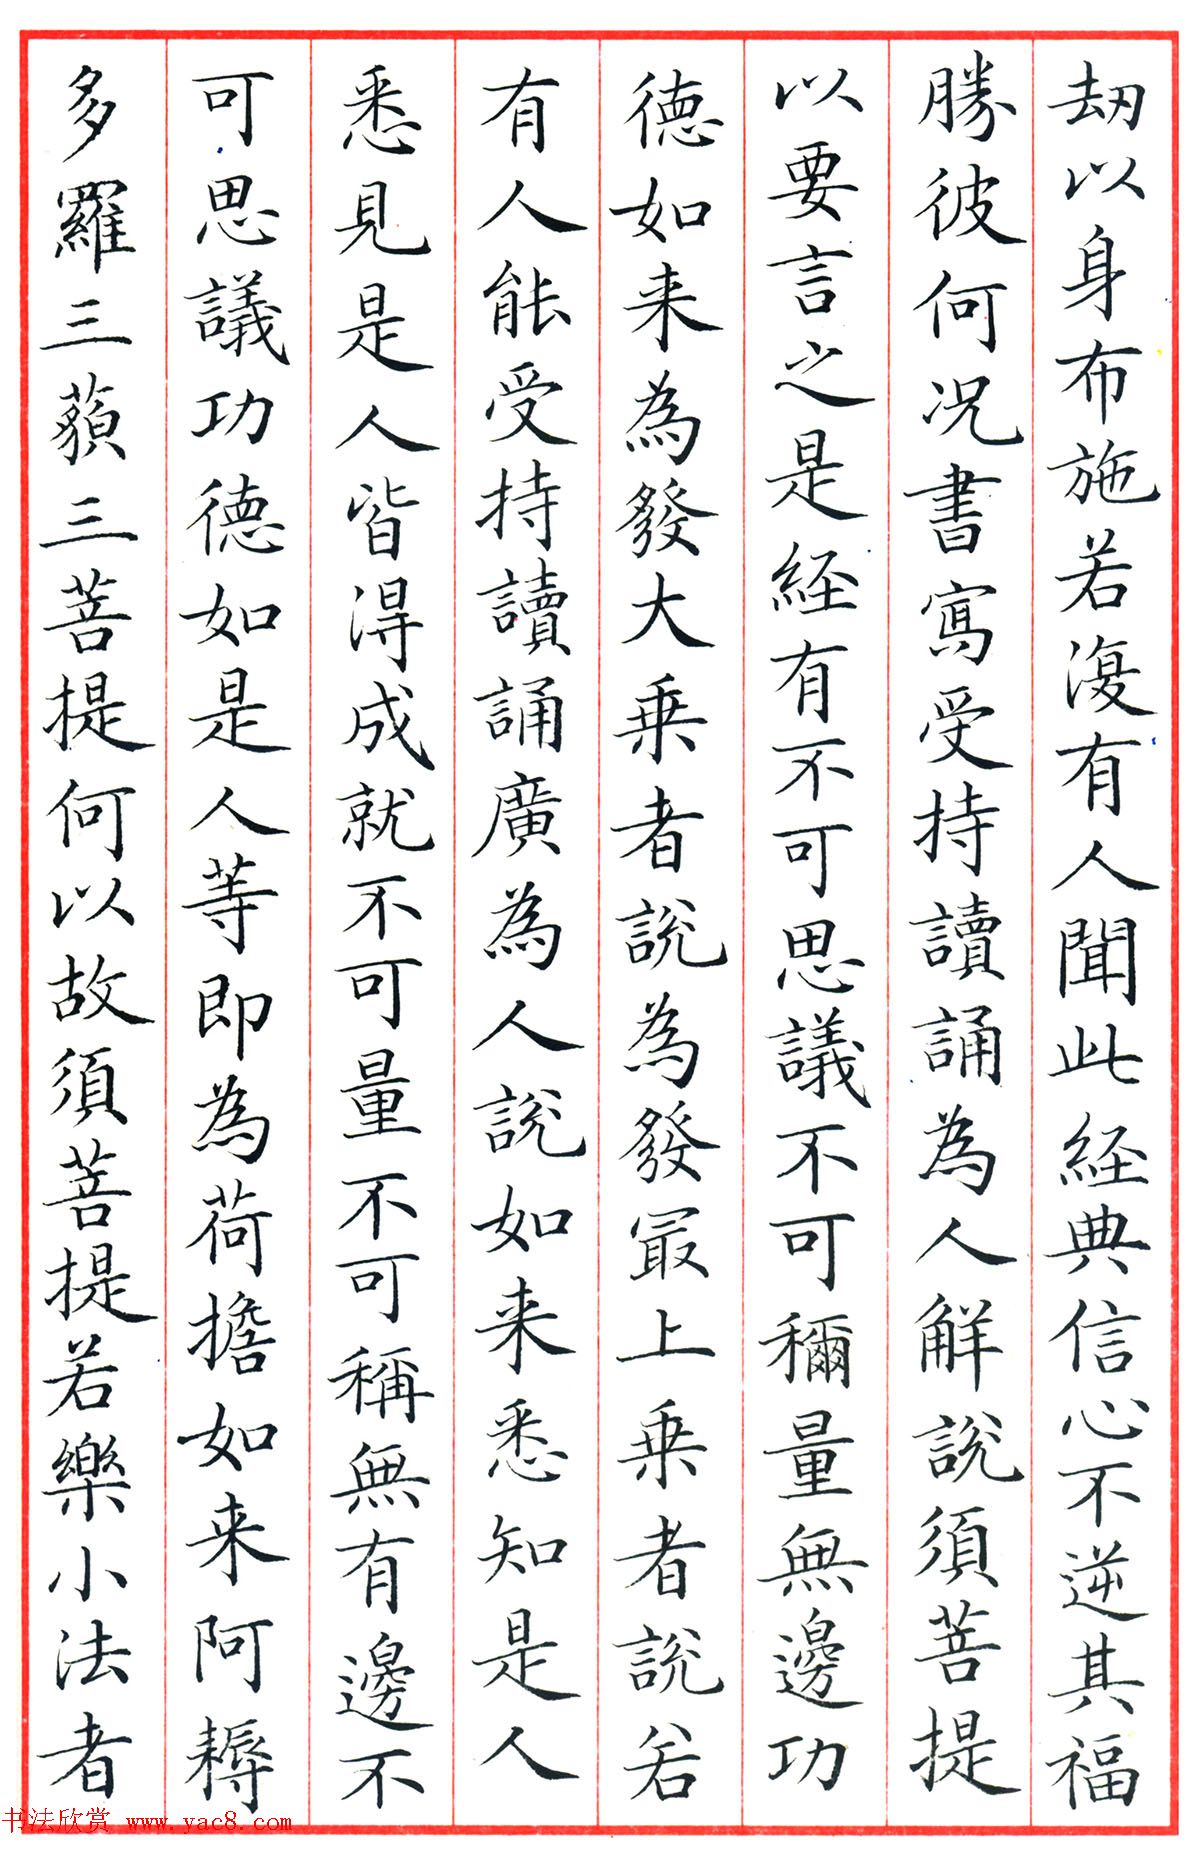 劫以身布施若復有人聞此経典信心不逆其福
勝彼何況書寫受持讀誦為人解說須菩提
以要言之是経有不可思議不可稱量無邊功
德如来為發大乗者說為發最上乗者說若
有人能受持讀誦廣為人說如来悉知是人
悉見是人皆得成就不可量不可稱無有邊不
可思議功德如是人等即為荷擔如来阿耨
多羅三藐三菩提何以故須菩提若樂小法者
书法欣赏 www.yac8.com